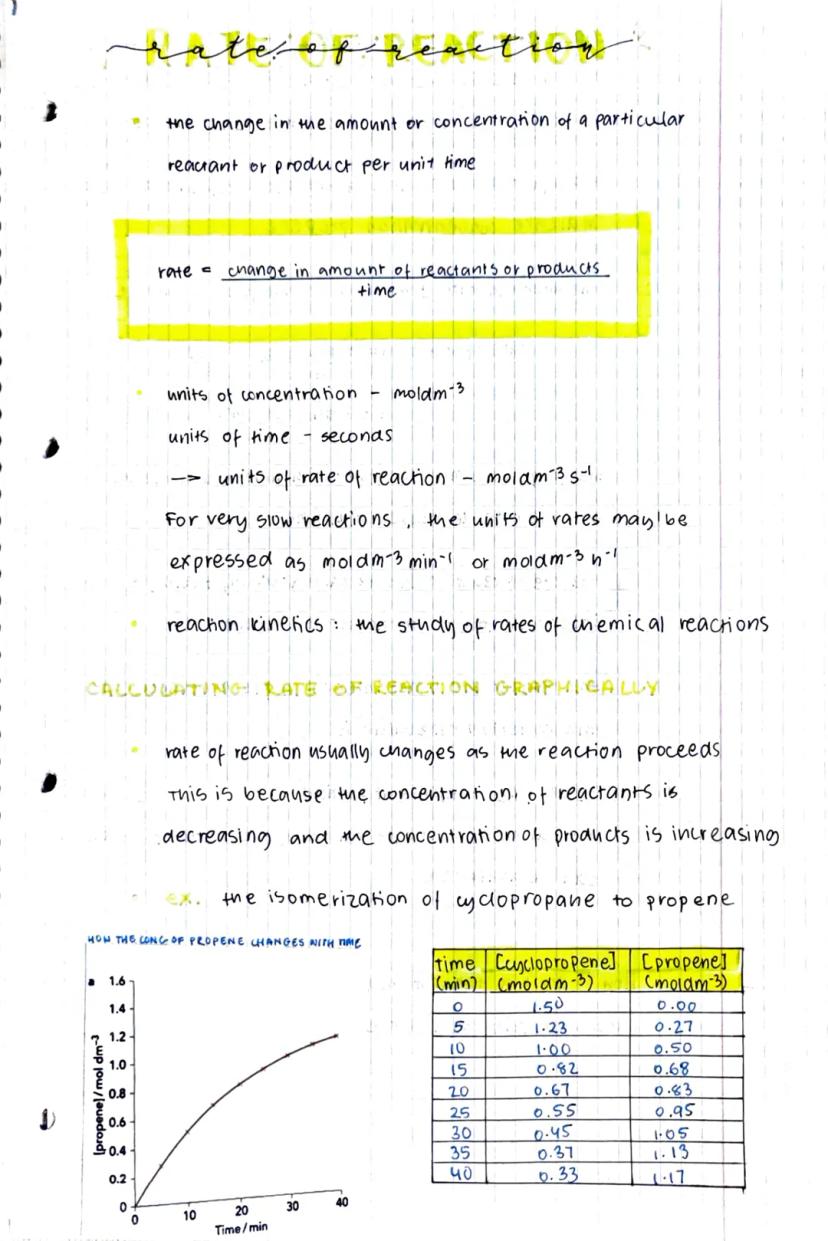 rate of reaction
RATE OF REACTION
• the change in the amount or concentration of a particular
reactant or product per unit time
rate = change in amount of reactants or products
time
• units of concentration - moldm⁻³
units of time - seconds
—> units of rate of reaction - moldm⁻³ s⁻¹
For very slow reactions, the units of rates may be
expressed as moldm⁻³ min⁻¹ or moldm⁻³ h⁻¹
• reaction kinetics: the study of rates of chemical reactions
CALCULATING RATE OF REACTION GRAPHICALLY
• rate of reaction usually changes as the reaction proceeds
This is because the concentration of reactants is
decreasing and the concentration of products is increasing
• ex. the isomerization of cyclopropane to propene
HOW THE CONC OF PROPENE CHANGES WITH TIME
a
[propene]/mol dm⁻³
1.6
1.4
1.2
1.0
0.8
0.6
0.4
0.2
0
0 10 20 30 40
Time/min
time (min) [cyclopropene] (moldm⁻³) [propene] (moldm⁻³)
0 1.50 0.00
5 1.23 0.27
10 1.00 0.50
15 0.82 0.68
20 0.67 0.83
25 0.55 0.95
30 0.45 1.05
35 0.37 1.13
40 0.33 1.17